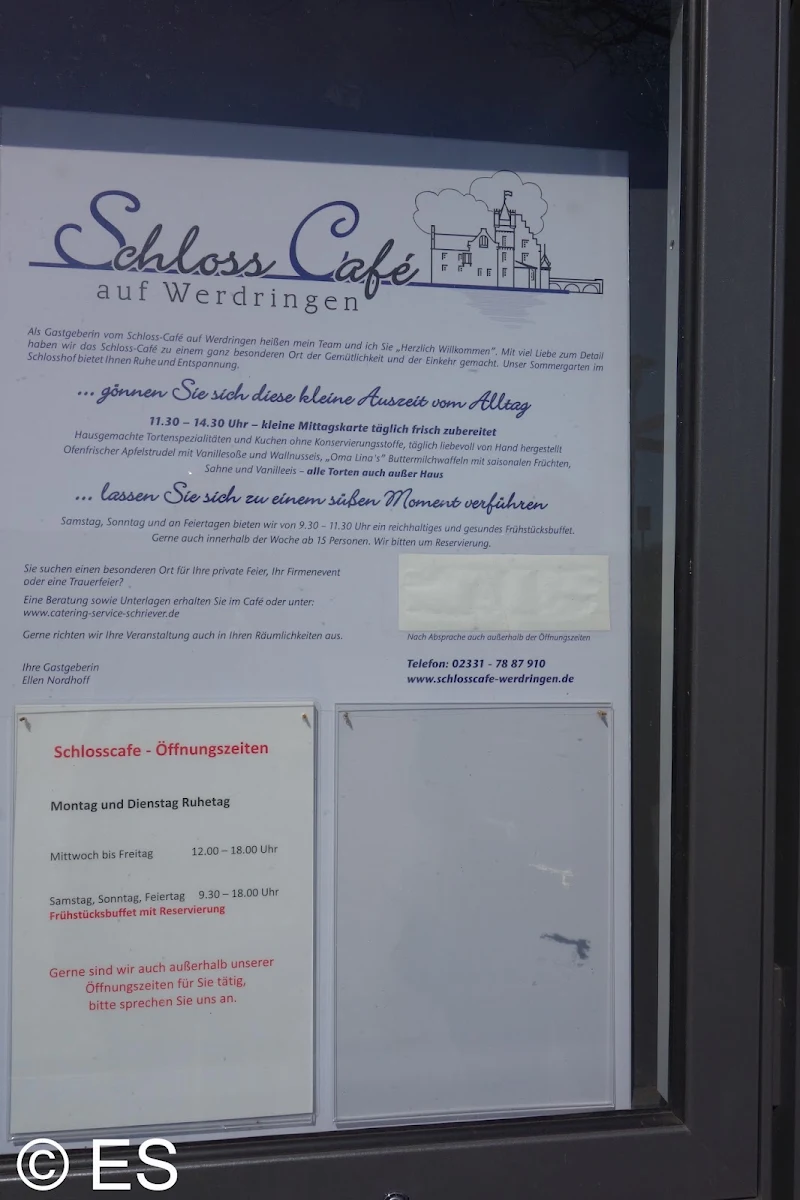 Schloss Café
auf Werdringen
Als Gastgeberin vom Schloss-Café auf Werdringen heißen mein Team und ich Sie „Herzlich Willkommen“. Mit viel Liebe zum Detail
haben wir das Schloss-Café zu einem ganz besonderen Ort der Gemütlichkeit und der Einkehr gemacht. Unser Sommergarten im
Schlosshof bietet Ihnen Ruhe und Entspannung.
... gönnen Sie sich diese kleine Auszeit vom Alltag
11.30 – 14.30 Uhr – kleine Mittagskarte täglich frisch zubereitet
Hausgemachte Tortenspezialitäten und Kuchen ohne Konservierungsstoffe, täglich liebevoll von Hand hergestellt
Ofenfrischer Apfelstrudel mit Vanillesoße und Wallnusseis, „Oma Lina's“ Buttermilchwaffeln mit saisonalen Früchten,
Sahne und Vanilleeis – alle Torten auch außer Haus
... lassen Sie sich zu einem süßen Moment verführen
Samstag, Sonntag und an Feiertagen bieten wir von 9.30 – 11.30 Uhr ein reichhaltiges und gesundes Frühstücksbuffet.
Gerne auch innerhalb der Woche ab 15 Personen. Wir bitten um Reservierung.
Sie suchen einen besonderen Ort für Ihre private Feier, Ihr Firmenevent
oder eine Trauerfeier?
Eine Beratung sowie Unterlagen erhalten Sie im Café oder unter:
www.catering-service-schriever.de
Gerne richten wir Ihre Veranstaltung auch in Ihren Räumlichkeiten aus.
Ihre Gastgeberin
Ellen Nordhoff
Nach Absprache auch außerhalb der Öffnungszeiten
Telefon: 02331 - 78 87 910
www.schlosscafe-werdringen.de
Schlosscafe - Öffnungszeiten
Montag und Dienstag Ruhetag
Mittwoch bis Freitag 12.00 – 18.00 Uhr
Samstag, Sonntag, Feiertag 9.30 – 18.00 Uhr
Frühstücksbuffet mit Reservierung
Gerne sind wir auch außerhalb unserer
Öffnungszeiten für Sie tätig,
bitte sprechen Sie uns an.
© ES